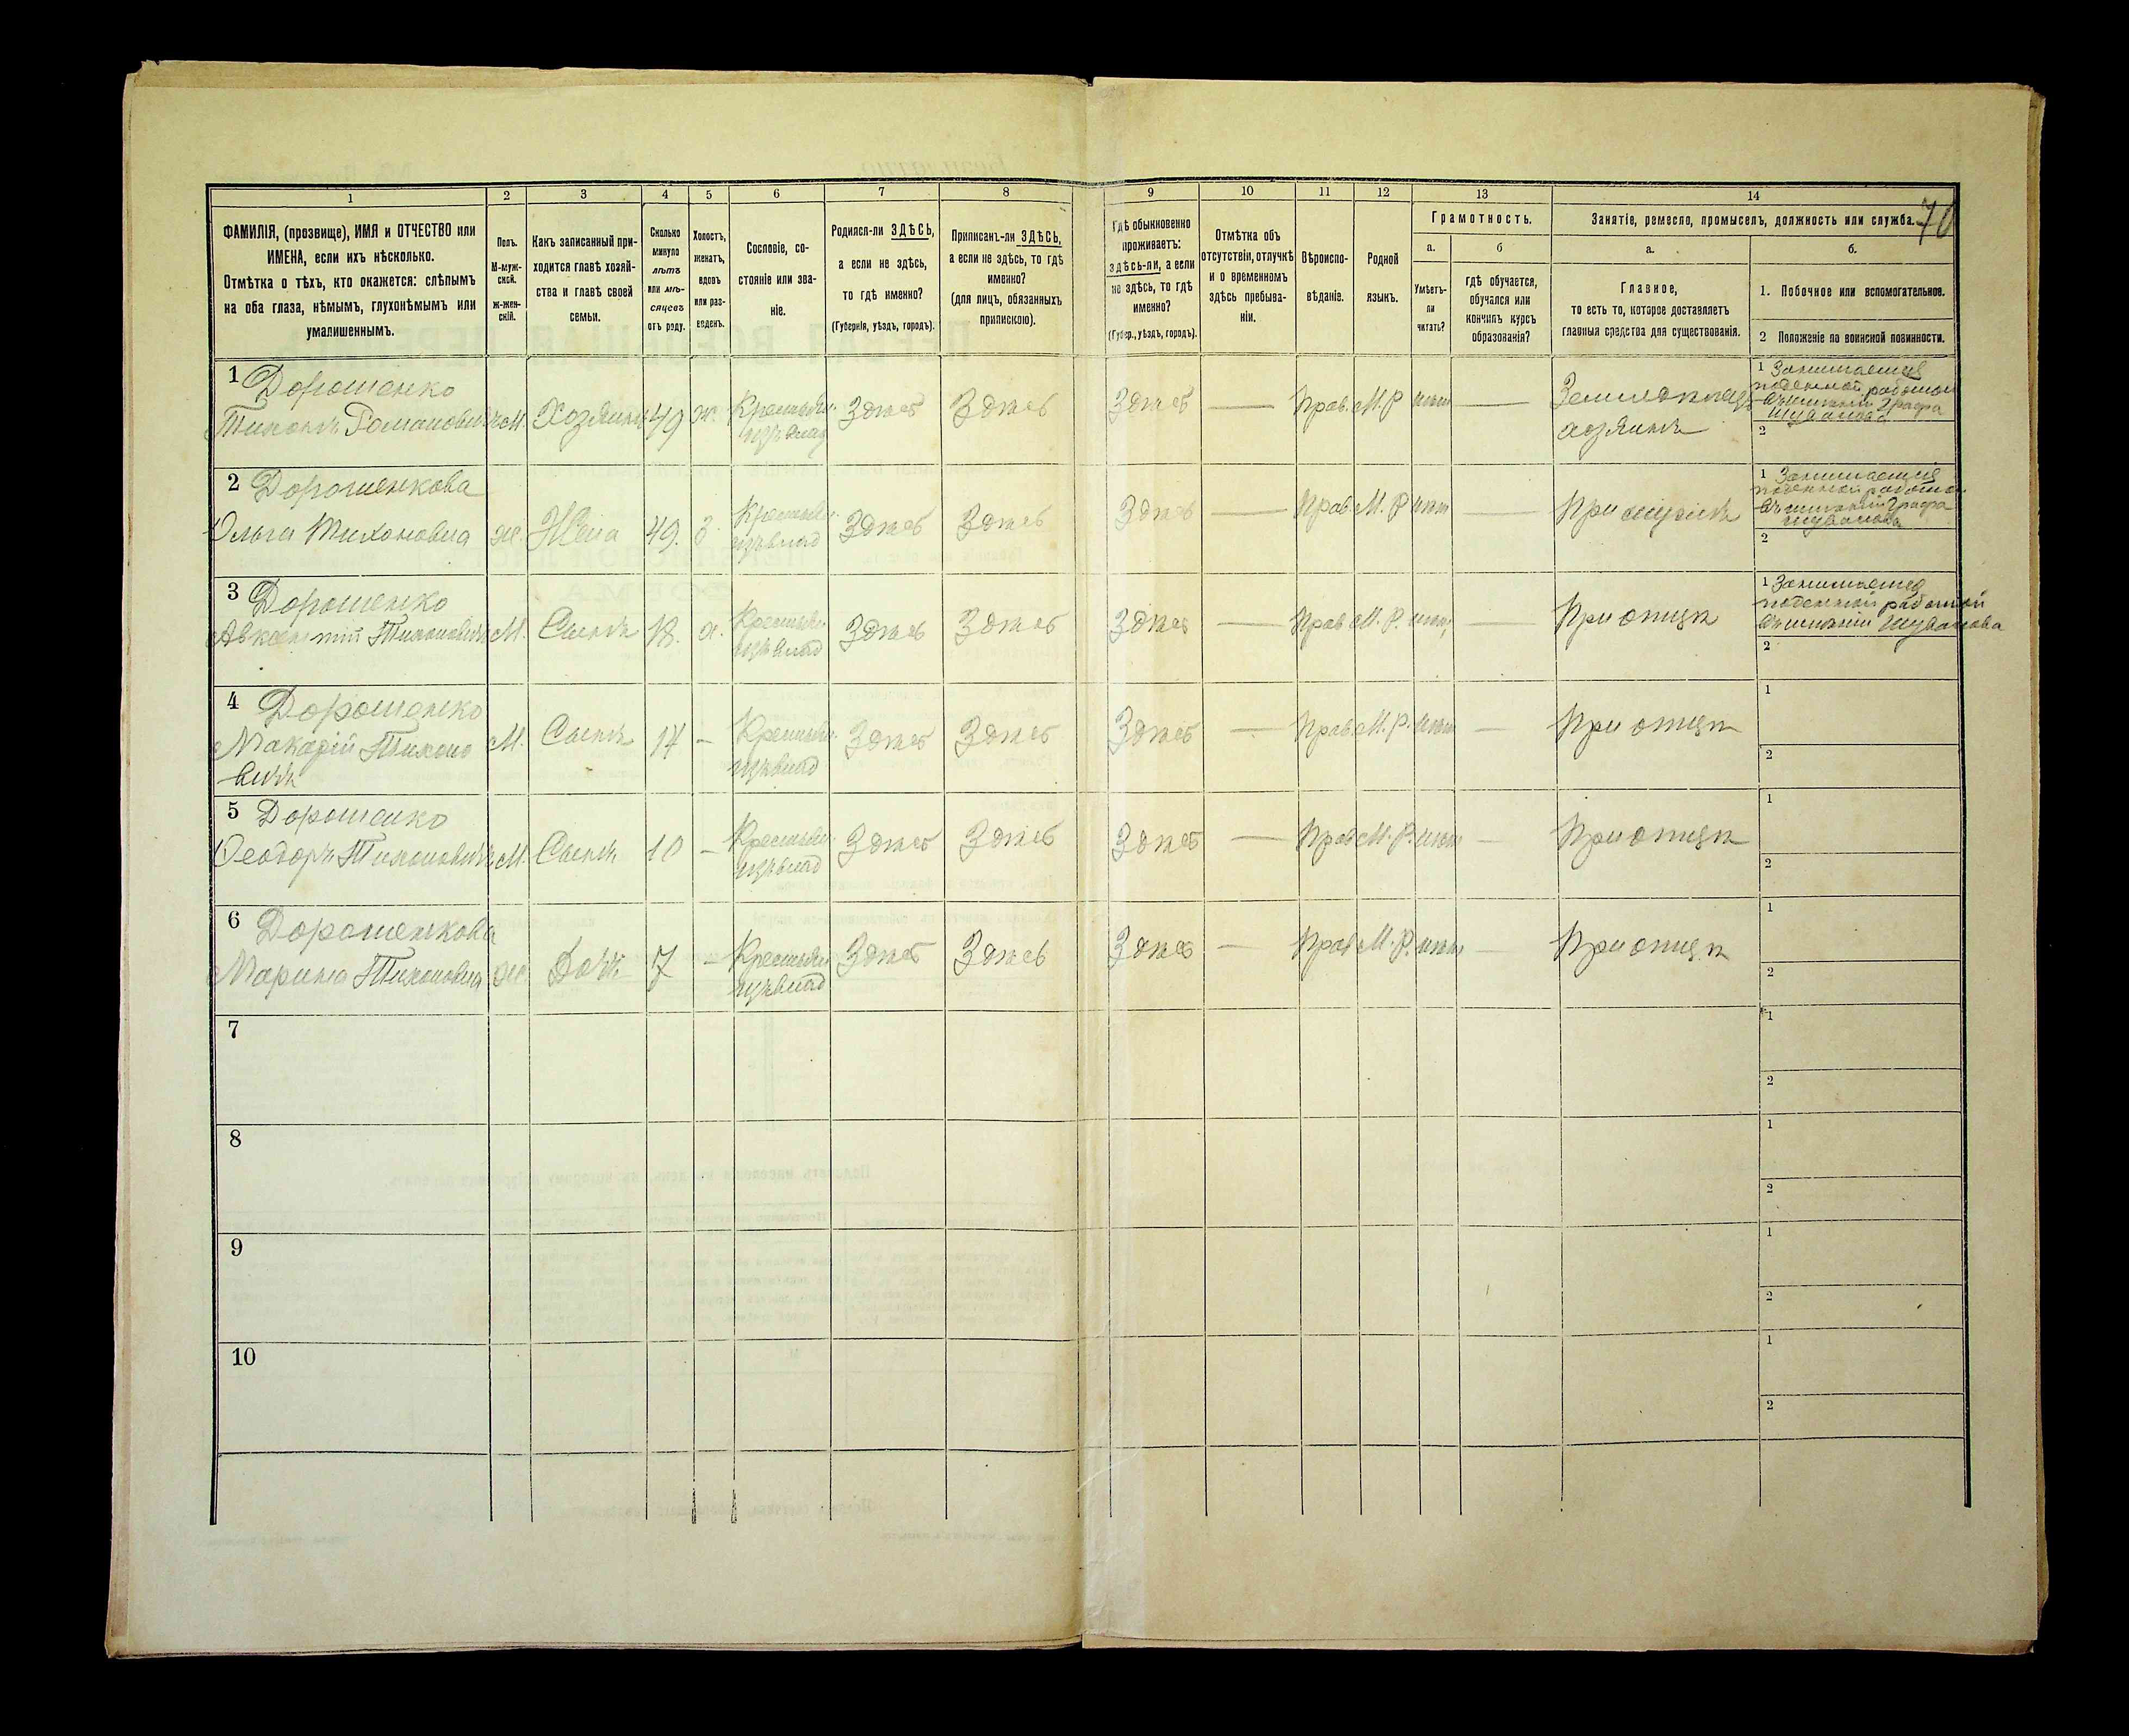 70
1 2 3 4 5 6 7 8 9 10 11 12 13 14
ФАМИЛІЯ, (прозвище), ИМЯ и ОТЧЕСТВО или
ИМЕНА, если ихъ нѣсколько.
Отмѣтка о тѣхъ, кто окажется: слѣпымъ
на оба глаза, нѣмымъ, глухонѣмымъ или
умалишеннымъ.
Полъ.
М-муж-
ской.
ж-жен-
скій.
Какъ записанный при-
ходится главѣ хозяй-
ства и главѣ своей
семьи.
Сколько
минуло
лѣтъ
или мѣ-
сяцевъ
отъ роду.
Холостъ,
женатъ,
вдовъ
или раз-
веденъ.
Сословіе, со-
стояніе или зва-
ніе.
Родился-ли ЗДѢСЬ,
а если не здѣсь,
то гдѣ именно?
(Губернія, уѣздъ, городъ).
Приписанъ-ли ЗДѢСЬ,
а если не здѣсь, то гдѣ
именно?
(для лицъ, обязанныхъ
припискою).
Гдѣ обыкновенно
проживаетъ:
здѣсь-ли, а если
не здѣсь, то гдѣ
именно?
(Губер., уѣздъ, городъ).
Отмѣтка объ
отсутствіи, отлучкѣ
и о временномъ
здѣсь пребыва-
ніи.
Вѣроиспо-
вѣданіе.
Родной
языкъ.
Грамотность.
а.
Умѣетъ-
ли
читать?
б
гдѣ обучается,
обучался или
кончилъ курсъ
образованія?
Занятіе, ремесло, промыселъ, должность или служба.
а.
Главное,
то есть то, которое доставляетъ
главныя средства для существованія.
б.
1. Побочное или вспомогательное.
2 Положеніе по воинской повинности.
1 Дорошенко
Тихонъ Романовичъ М. Хозяинъ 49 ж. Крестьян. Здѣсь Здѣсь Здѣсь — Прав. М. Р нѣт — Землевладѣ
изъ влад хозяинъ
1 Занимается
поденной работой
въ имѣніи Графа
Шувалова
2
2 Дорошенкова
Ольга Тихоновна ж. Жена 49. З. Крестьян. Здѣсь Здѣсь Здѣсь — Прав М. Р нѣт — При мужѣ
изъ влад
1 Занимается
поденной работой
въ имѣніи Графа
Шувалова
2
3 Дорошенко
Авксентій Тихоновичъ М. Сынъ 18. х. Крестьян. Здѣсь Здѣсь Здѣсь — Прав М. Р. нѣт — При отцѣ
изъ влад
1 Занимается
поденной работой
въ имѣніи Шувалова
2
4 Дорошенко
Макарій Тихоно М. Сынъ 14 — Крестьян. Здѣсь Здѣсь Здѣсь — Прав М. Р. нѣт — При отцѣ
вичъ изъ влад
1
2
5 Дорошенко
Ѳеодоръ Тихоновичъ М. Сынъ 10 — Крестьян. Здѣсь Здѣсь Здѣсь — Прав М. Р. нѣт — При отцѣ
изъ влад
1
2
6 Дорошенкова
Марина Тихоновна ж Дочь 7 — Крестьян. Здѣсь Здѣсь Здѣсь — Прав М. Р. нѣт — При отцѣ
изъ влад
1
2
7
1
2
8
1
2
9
1
2
10
1
2